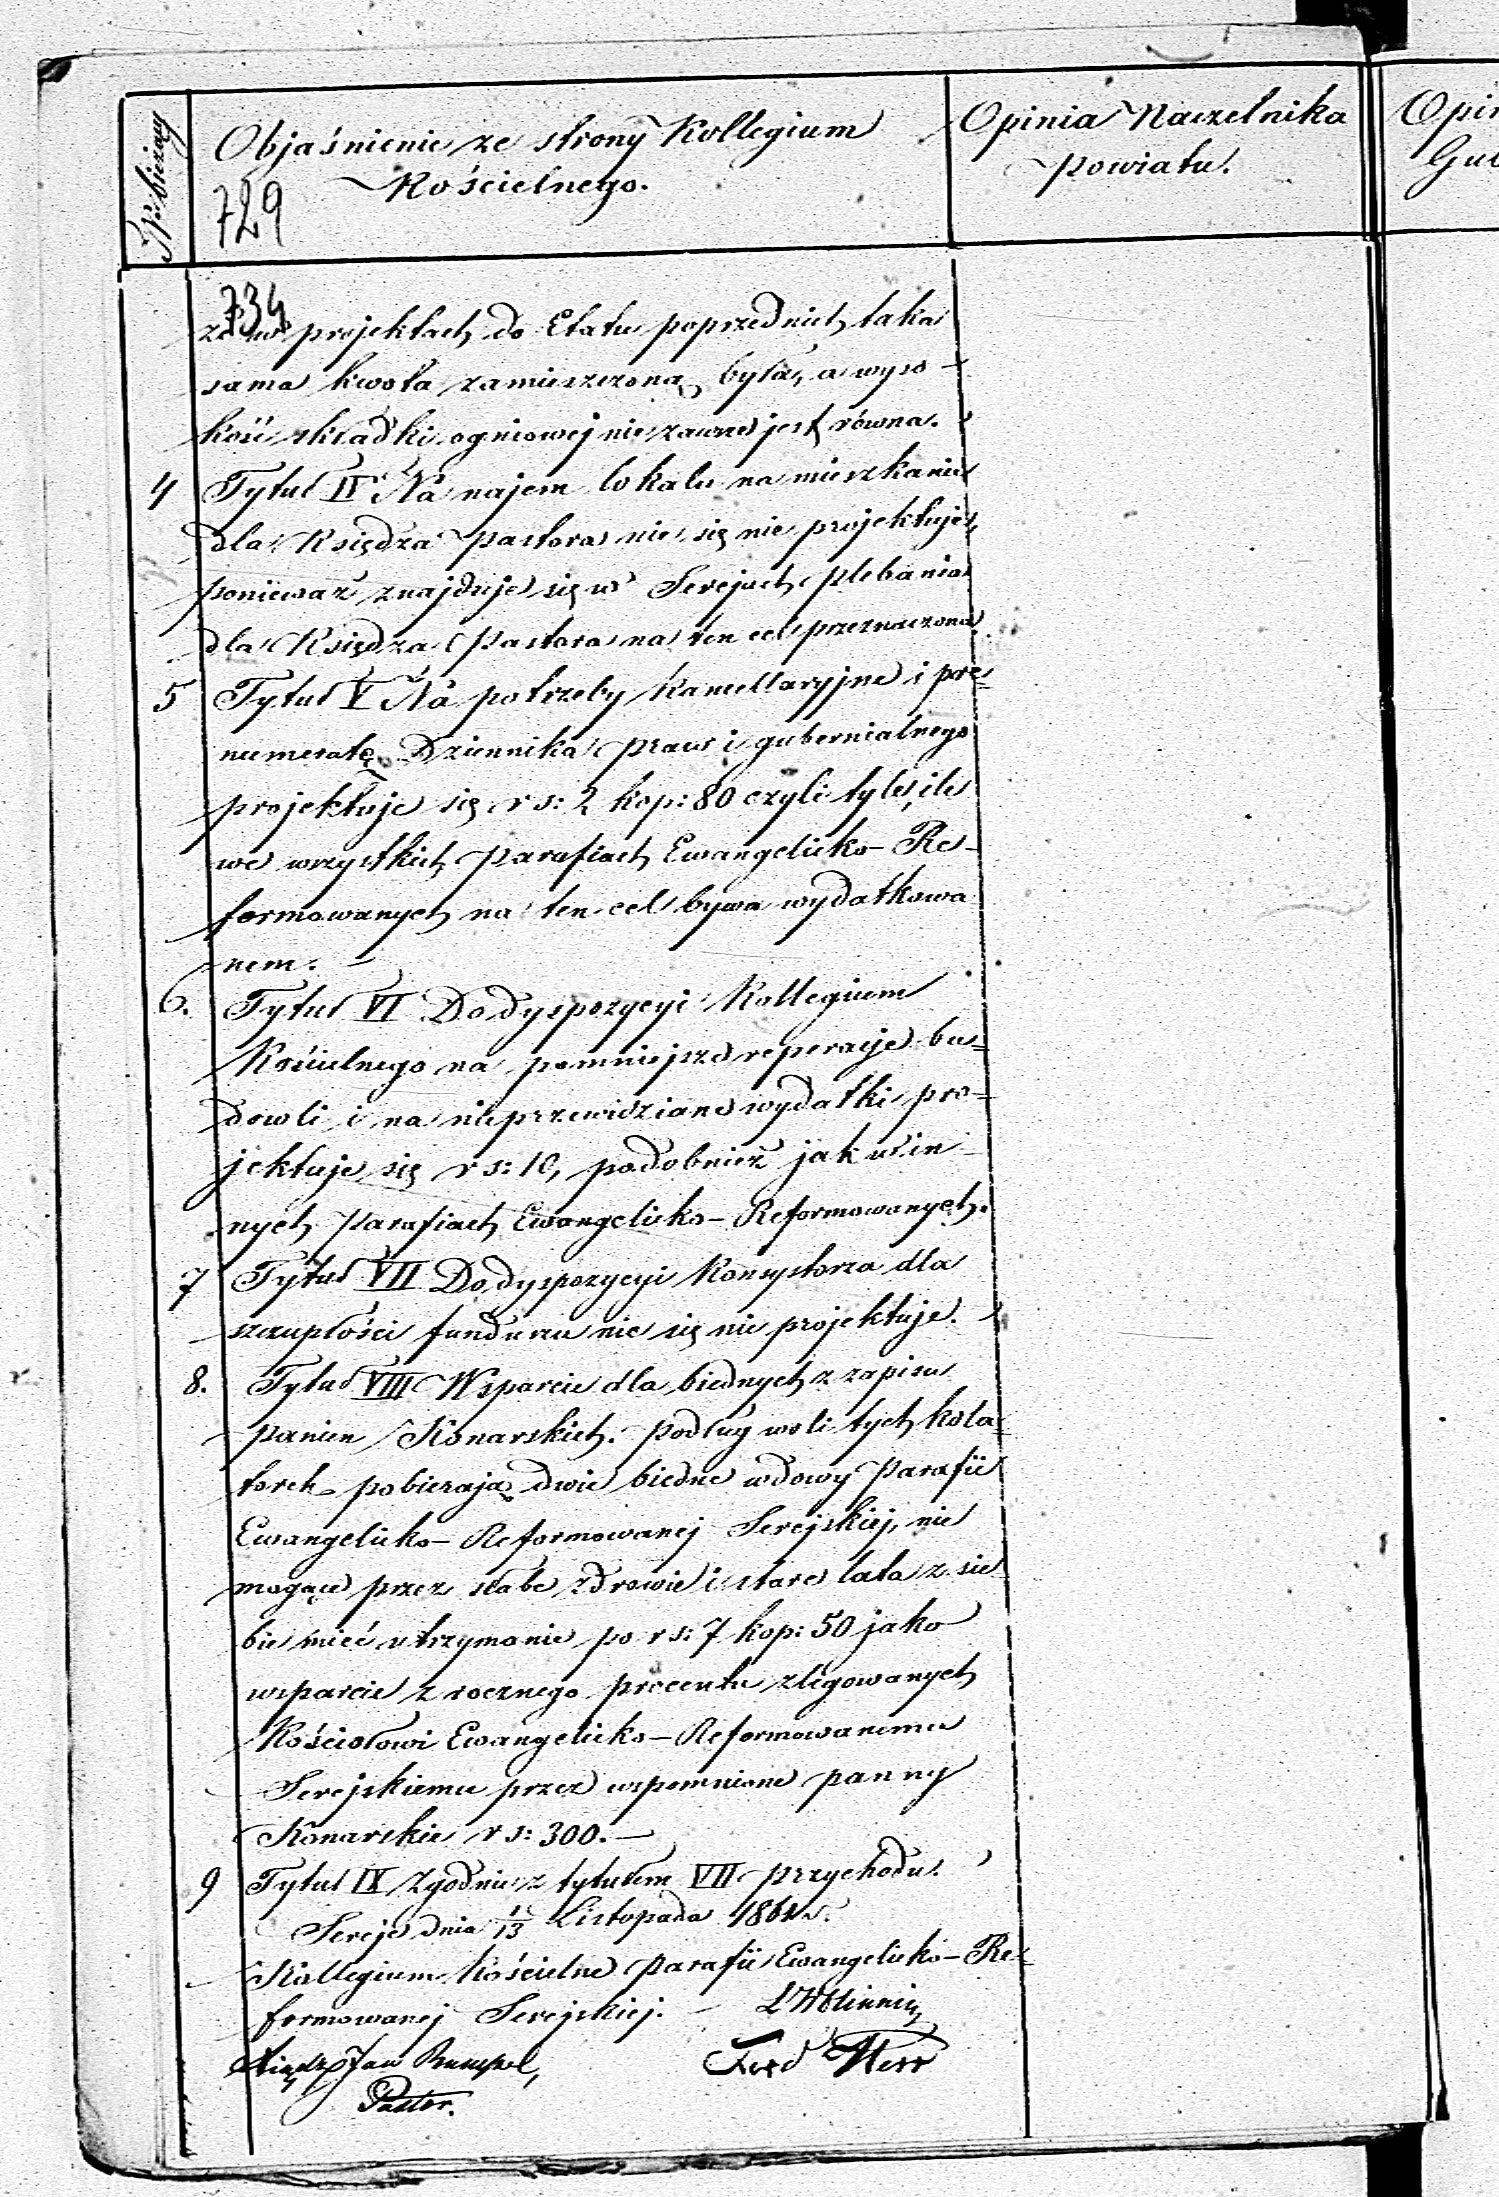 Nr bieżący
Objaśnienie ze strony Kollegium
Kościelnego.
Opinia Naczelnika
Powiatu.
Opin
Gub
729
734
że w projektach do Etatu poprzednich taka
sama kwota zamieszczoną była, a wyso-
kość składki ogniowej nie zawsze jest równa.
4 Tytuł IV Na najem lokalu na mieszkanie
dla Księdza Pastora nic się nie projektuje,
ponieważ znajduje się w Serejach plebania
dla Księdza Pastora na ten cel przeznaczona.
5 Tytuł V Na potrzeby Kancellaryjne i pre=
numeratę Dziennika praw i gubernialnego
projektuje się rs: 2 kop: 80 czyli tyle, ile
we wszystkich Parafiach Ewangelicko-Re-
formowanych na ten cel bywa wydatkowa
nem.
6. Tytuł VI Do dyspozycyi Kollegium
Kościelnego na pomniejsze reperacije bu=
dowli i na nieprzewidziane wydatki pro=
jektuje się rs: 10, podobnież jak w in-
nych Parafiach Ewangelicko-Reformowanych.
7 Tytuł VII Do dyspozycyi Konsystorza dla
szczupłości funduszu nic się nie projektuje.
8. Tytuł VIII Wsparcie dla biednych z zapisu
panien Konarskich. Podług woli tych kola=
torek pobierają dwie biedne wdowy Parafii
Ewangelicko-Reformowanej Serejskiej, nie
mogące przez słabe zdrowie i stare lata z sie
bie mieć utrzymanie po rs: 7 kop: 50 jako
wsparcie z rocznego procentu zlegowanych
Kościołowi Ewangelicko-Reformowanemu
Serejskiemu przez wspomnione panny
Konarskie rs: 300.-
9 Tytuł IX Zgodnie z tytułem VII przychodu.
Sereje dnia 1/13 Listopada 1864 r.
Kollegium Kościelne Parafii Ewangelicko-Re=
formowanej Serejskiej.
Ksiądz Jan
Pastor.
Ferd